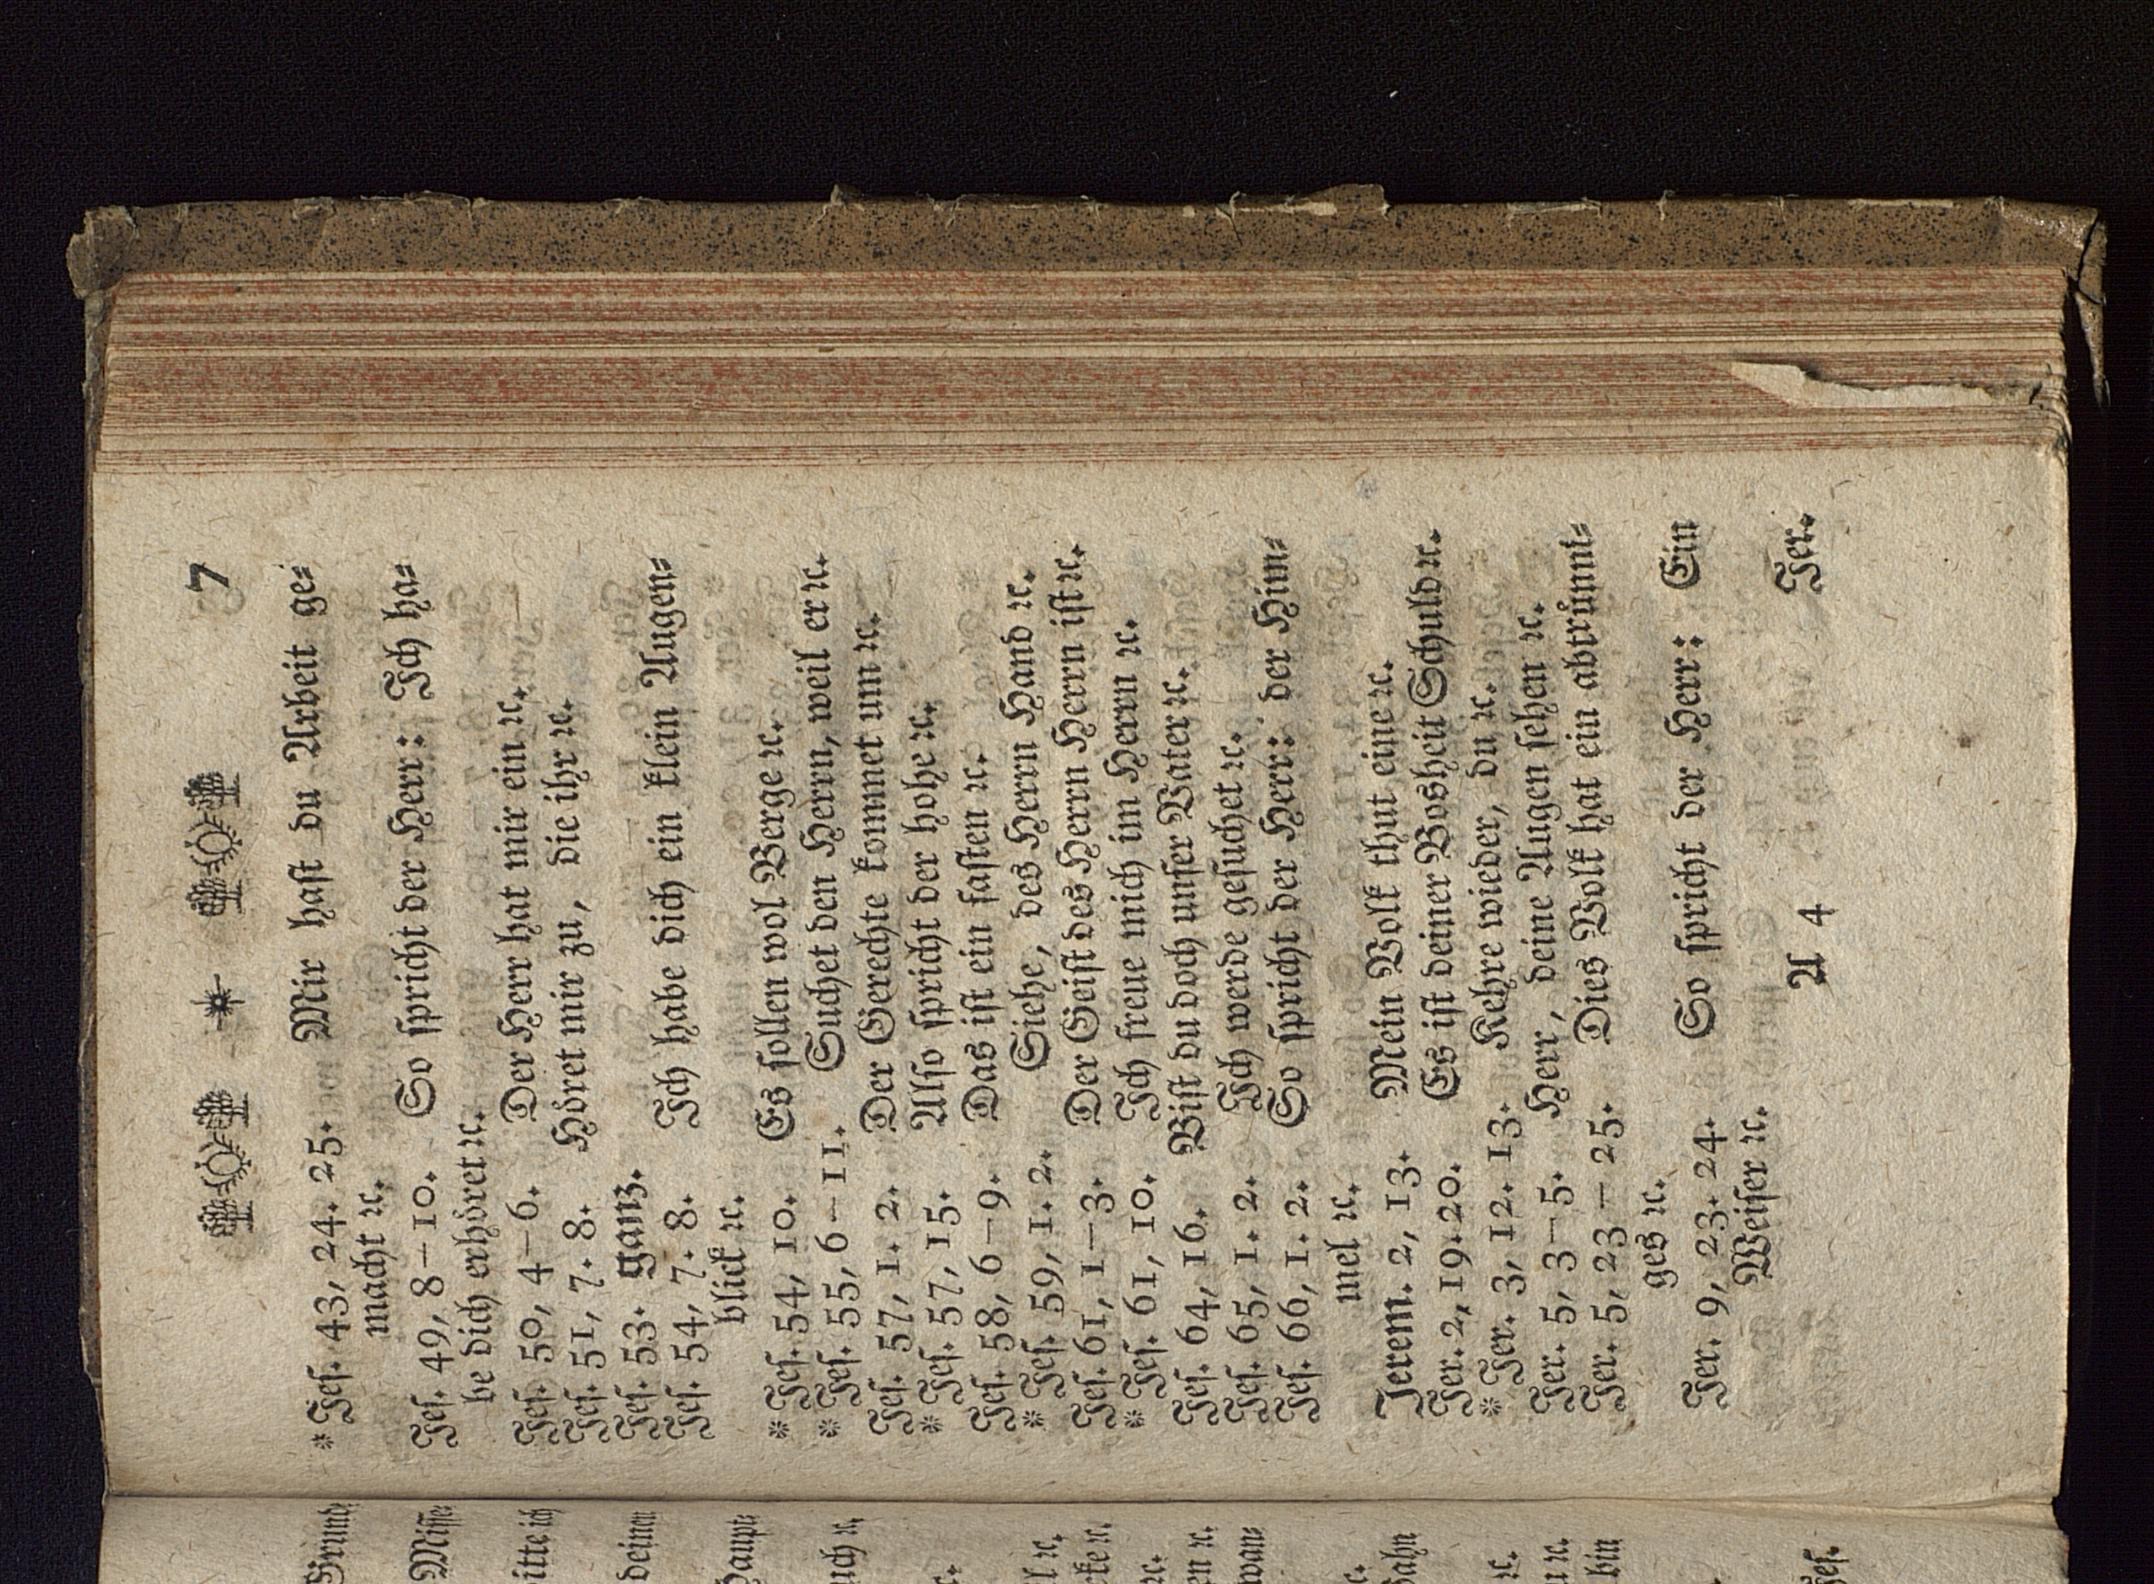 7
* Jeſ. 43, 24. 25. Mir haſt du Arbeit ge⸗
macht ꝛc.
Jeſ. 49, 8–10. So ſpricht der Herr: Ich ha⸗
be dich erhöret ꝛc.
Jeſ. 50, 4–6. Der Herr hat mir ein ꝛc.
Jeſ. 51, 7. 8. Höret mir zu, die ihr ꝛc.
Jeſ. 53. ganz.
Jeſ. 54, 7. 8. Ich habe dich ein klein Augen⸗
blick ꝛc.
* Jeſ. 54, 10. Es ſollen wol Berge ꝛc.
* Jeſ. 55, 6–11. Suchet den Herrn, weil er ꝛc.
Jeſ. 57, 1. 2. Der Gerechte kommet um ꝛc.
* Jeſ. 57, 15. Alſo ſpricht der hohe ꝛc.
Jeſ. 58, 6–9. Das iſt ein faſten ꝛc.
* Jeſ. 59, 1. 2. Siehe, des Herrn Hand ꝛc.
Jeſ. 61, 1–3. Der Geiſt des Herrn Herrn iſt ꝛc.
* Jeſ. 61, 10. Ich freue mich im Herrn ꝛc.
Jeſ. 64, 16. Biſt du doch unſer Vater ꝛc.
Jeſ. 65, 1. 2. Ich werde geſuchet ꝛc.
Jeſ. 66, 1. 2. So ſpricht der Herr: der Him⸗
mel ꝛc.
Jerem. 2, 13. Mein Volk thut eine ꝛc.
Jer. 2, 19. 20. Es iſt deiner Bosheit Schuld ꝛc.
* Jer. 3, 12. 13. Kehre wieder, du ꝛc.
Jer. 5, 3–5. Herr, deine Augen ſehen ꝛc.
Jer. 5, 23–25. Dies Volk hat ein abtrünni⸗
ges ꝛc.
Jer. 9, 23. 24. So ſpricht der Herr: Ein
Weiſer ꝛc.
A 4 Jer.
Grund⸗
Miſſe⸗
bitte ich
deinen
Haupt⸗
uch ꝛc.
ꝛc.
wan⸗
Bahn
ꝛc.
bin
Jeſ.